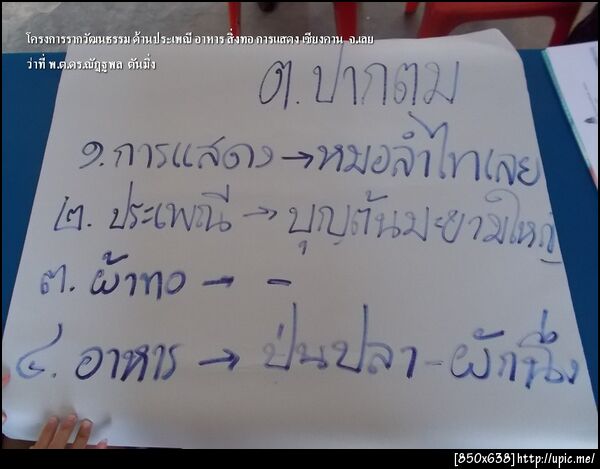 โครงการรากวัฒนธรรม ด้านประเพณี อาหาร สิ่งทอ การแสดง เชียงคาน จ.เลย
ว่าที่ พ.ต.ดร.ณัฏฐพล ตันมิ่ง
ต.ปากตม
๑. การแสดง → หมอลำไทเลย
๒. ประเพณี → บุญต้นมะขามใหญ่
๓. ผ้าทอ → -
๔. อาหาร → ป่นปลา - ผักนึ่ง
[850x638] http://upic.me/